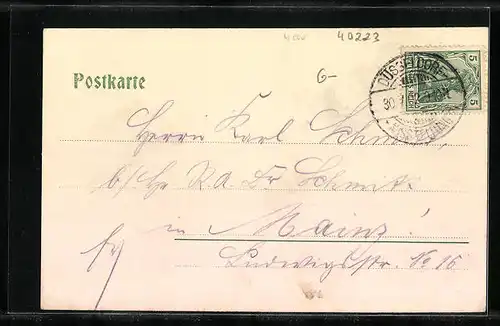 40223
6-
Postkarte
DÜSSELDORF
30.
5
5
Herrn Karl Schmitz
b/ Hr R.A. Dr Schmitz
in Mainz!
Ludwigsstr. No 16